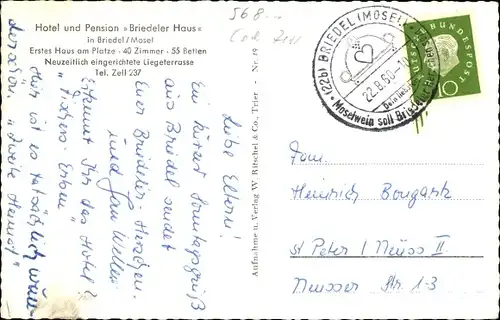 Hotel und Pension »Briedeler Haus«
in Briedel / Mosel
Erstes Haus am Platze · 40 Zimmer · 55 Betten
Neuzeitlich eingerichtete Liegeterrasse
Tel. Zell 237
568
(22b) BRIEDEL (MOSEL)
22.8.60
Moselwein soll
DEUTSCHE BUNDESPOST
10
Aufnahme u. Verlag W. Ritschel & Co., Trier
Nr. 19
Liebe Eltern!
Ein kurzer Sonntagsgruß
aus Briedel sendet
Euer Briedeler Herzchen.
und
Erkennt Ihr das Hotel?
"Fischers Erben"
Hier ist es tatsächlich
"zweite Heimat"
Fam.
Heinrich Bongartz
St Peter / Neuss II
Neusser Str. 1-3